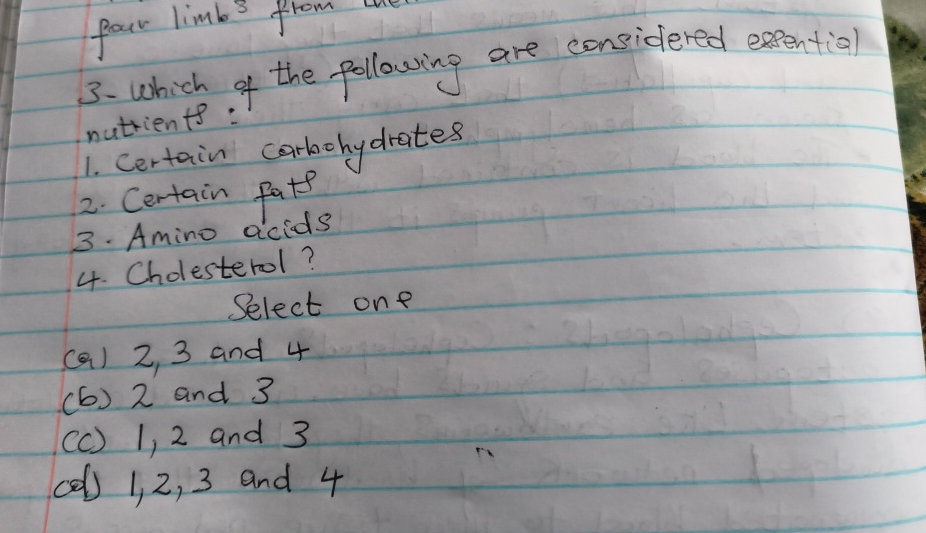 four limbs from
3- Which of the following are considered essential
nutrients :
1. Certain carbohydrates
2. Certain fats
3. Amino acids
4. Cholesterol ?
Select one
(a) 2, 3 and 4
(b) 2 and 3
(c) 1, 2 and 3
(d) 1, 2, 3 and 4